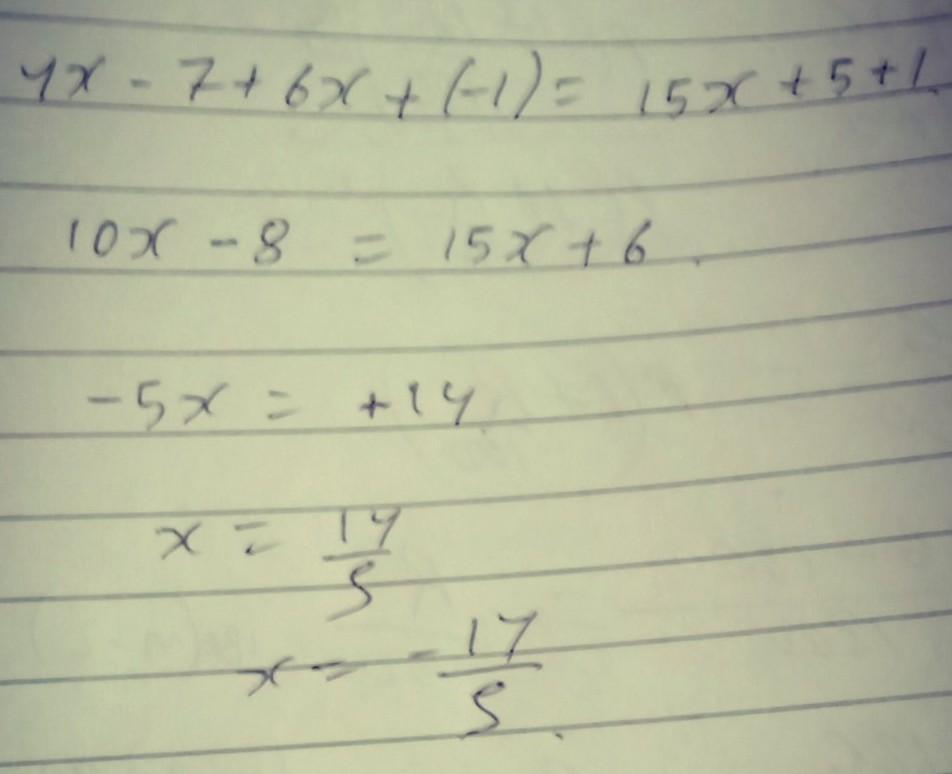 4x - 7 + 6x + (-1) = 15x + 5 + 1.
10x - 8 = 15x + 6.
-5x = +14
x = 14/5
x = -17/5.